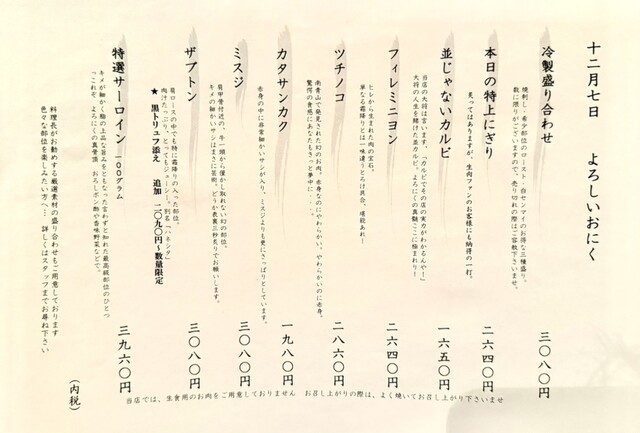 十二月七日　よろしいおにく
冷製盛り合わせ　三〇八〇円
焼刺し・希少部位のロースト・白センマイのお得な三種盛り。
数に限りがございますので、売り切れの際はご容赦下さいませ。
本日の特上にぎり　二六四〇円
炙ってはありますが、生肉ファンのお客様にも納得の一打。
並じゃないカルビ　一六五〇円
当店の大将は言います。「カルビでその店の実力がわかるんや！」
大将の人生を賭けた並カルビ。よろにくの真髄ここに極まれり！
フィレミニヨン　二六四〇円
ヒレから生まれた肉の宝石。
単なる霜降りとは一味違うとろけ具合、堪能あれ！
ツチノコ　二八六〇円
南青山で発見された幻のお肉。赤身なのにやわらかい。やわらかいのに赤身。
驚愕の食感にあなたもきっと夢中に・・・
カタサンカク　一九八〇円
赤身の中に非常細かいサシが入り、ミスジよりも更にさっぱりとしています。
ミスジ　三〇八〇円
肩甲骨付近の、牛一頭から僅かし取れない幻の部位。
キメの細かいサシはまさに芸術。どうか表裏三秒炙りでお願いします。
ザブトン　三〇八〇円
肩ロースの中でも特に霜降りの入った部位。
肉汁たっぷり、とってもジューシー。別名「ハネシタ」
★黒トリュフ添え　追加　二〇九〇円～数量限定
特選サーロイン　一〇〇グラム　三九六〇円
キメが細かく脂の上品な旨みをともなった言わずと知れた最高級部位のひとつ
「これぞ　よろにくの真骨頂　おろしポン酢や香味野菜などで。
料理長がお勧めする厳選素材の盛り合わせもご用意しております
色々な部位を楽しみたい方へ…　詳しくはスタッフまでお尋ね下さい
（内税）
当店では、生食用のお肉をご用意しておりません　お召し上がりの際は、よく焼いてお召し上がり下さいませ